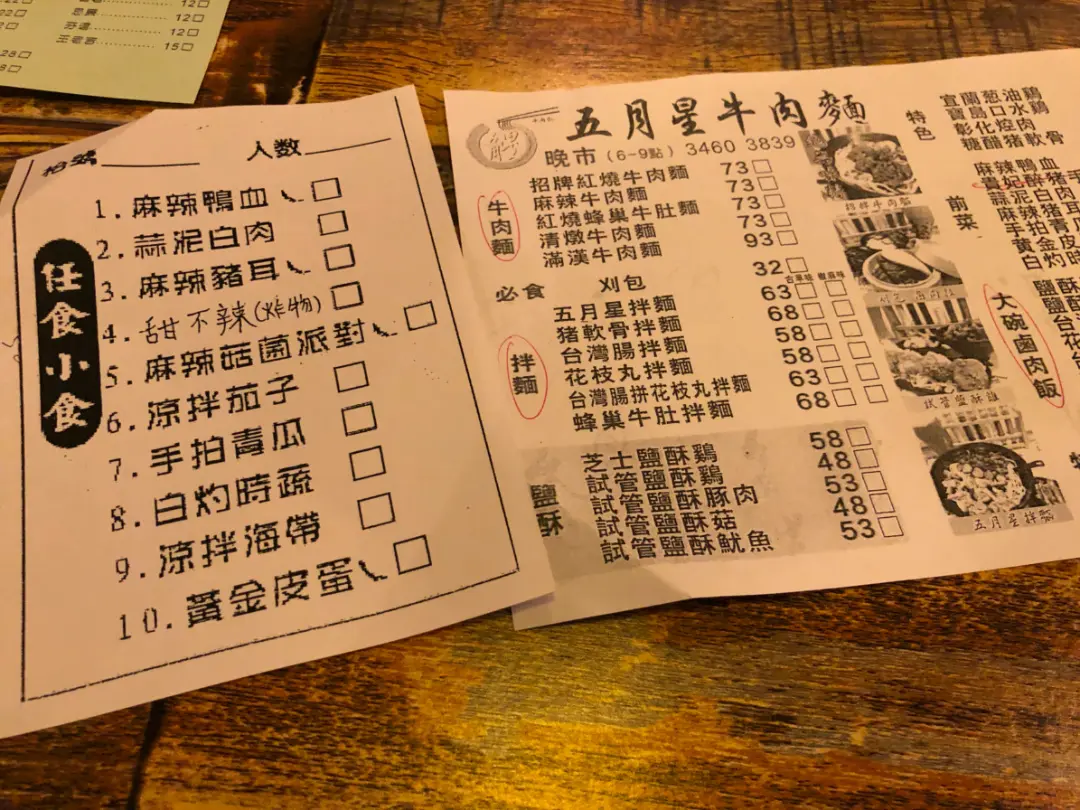 12□
12□
12□
王老吉 15□
28□
8□
枱號
人数
任食小食
1.麻辣鴨血□
2.蒜泥白肉□
3.麻辣豬耳□
4.甜不辣(炸物)□
5.麻辣菇菌派對□
6.涼拌茄子□
7.手拍青瓜□
8.白灼時蔬□
9.涼拌海帶□
10.黃金皮蛋□
五月星牛肉麵
晚市(6-9點) 3460 3839
牛肉麵
招牌紅燒牛肉麵 73□
麻辣牛肉麵 73□
紅燒蜂巢牛肚麵 73□
清燉牛肉麵 73□
滿漢牛肉麵 93□
必食 刈包 32□
拌麵
五月星拌麵 63□□
猪軟骨拌麵 68□□
台灣腸拌麵 58□□
花枝丸拌麵 58□□
台灣腸拼花枝丸拌麵 63□□
蜂巢牛肚拌麵 68□□
鹽酥
芝士鹽酥鷄 58□
試管鹽酥鷄 48□
試管鹽酥豚肉 53□
試管鹽酥菇 48□
試管鹽酥魷魚 53□
招牌牛肉麵
試管鹽酥雞
五月星拌麵
特色
宜蘭葱油鷄
寶島口水鷄
彰化焢肉
糖醋猪軟骨
前菜
麻辣鴨血
貴妃醉猪手
蒜泥白肉
麻辣猪耳
手拍青瓜
黃金皮
白灼時
大碗鹵肉飯
鹽酥
鹽酥
台
花